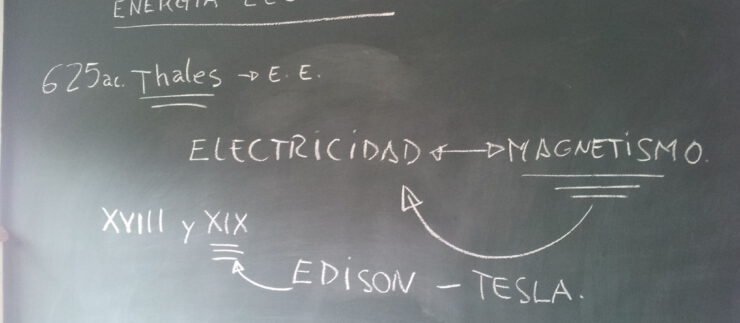 ENERGÍA
625ac. Thales → E. E.
ELECTRICIDAD ↔ MAGNETISMO.
XVIII y XIX
EDISON - TESLA.